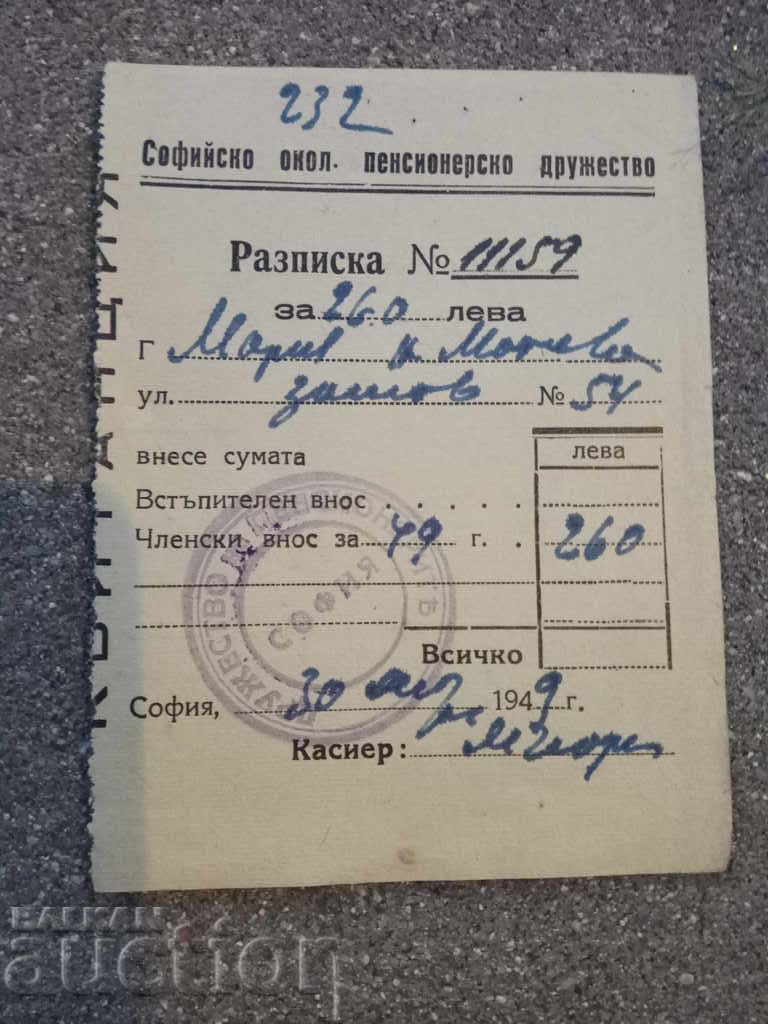 232
Софийско окол. пенсионерско дружество
Разписка № 11159
за 260 лева
Г Мария Н Мотева
ул. № 54
внесе сумата лева
Встъпителен внос . . . . .
Членски внос за 49 г. . 260
Всичко
София, 30 1949 г.
Касиер:
КВИТАНЦИЯ
ДРУЖЕСТВО
СОФИЯ
БАЛКАН
auction